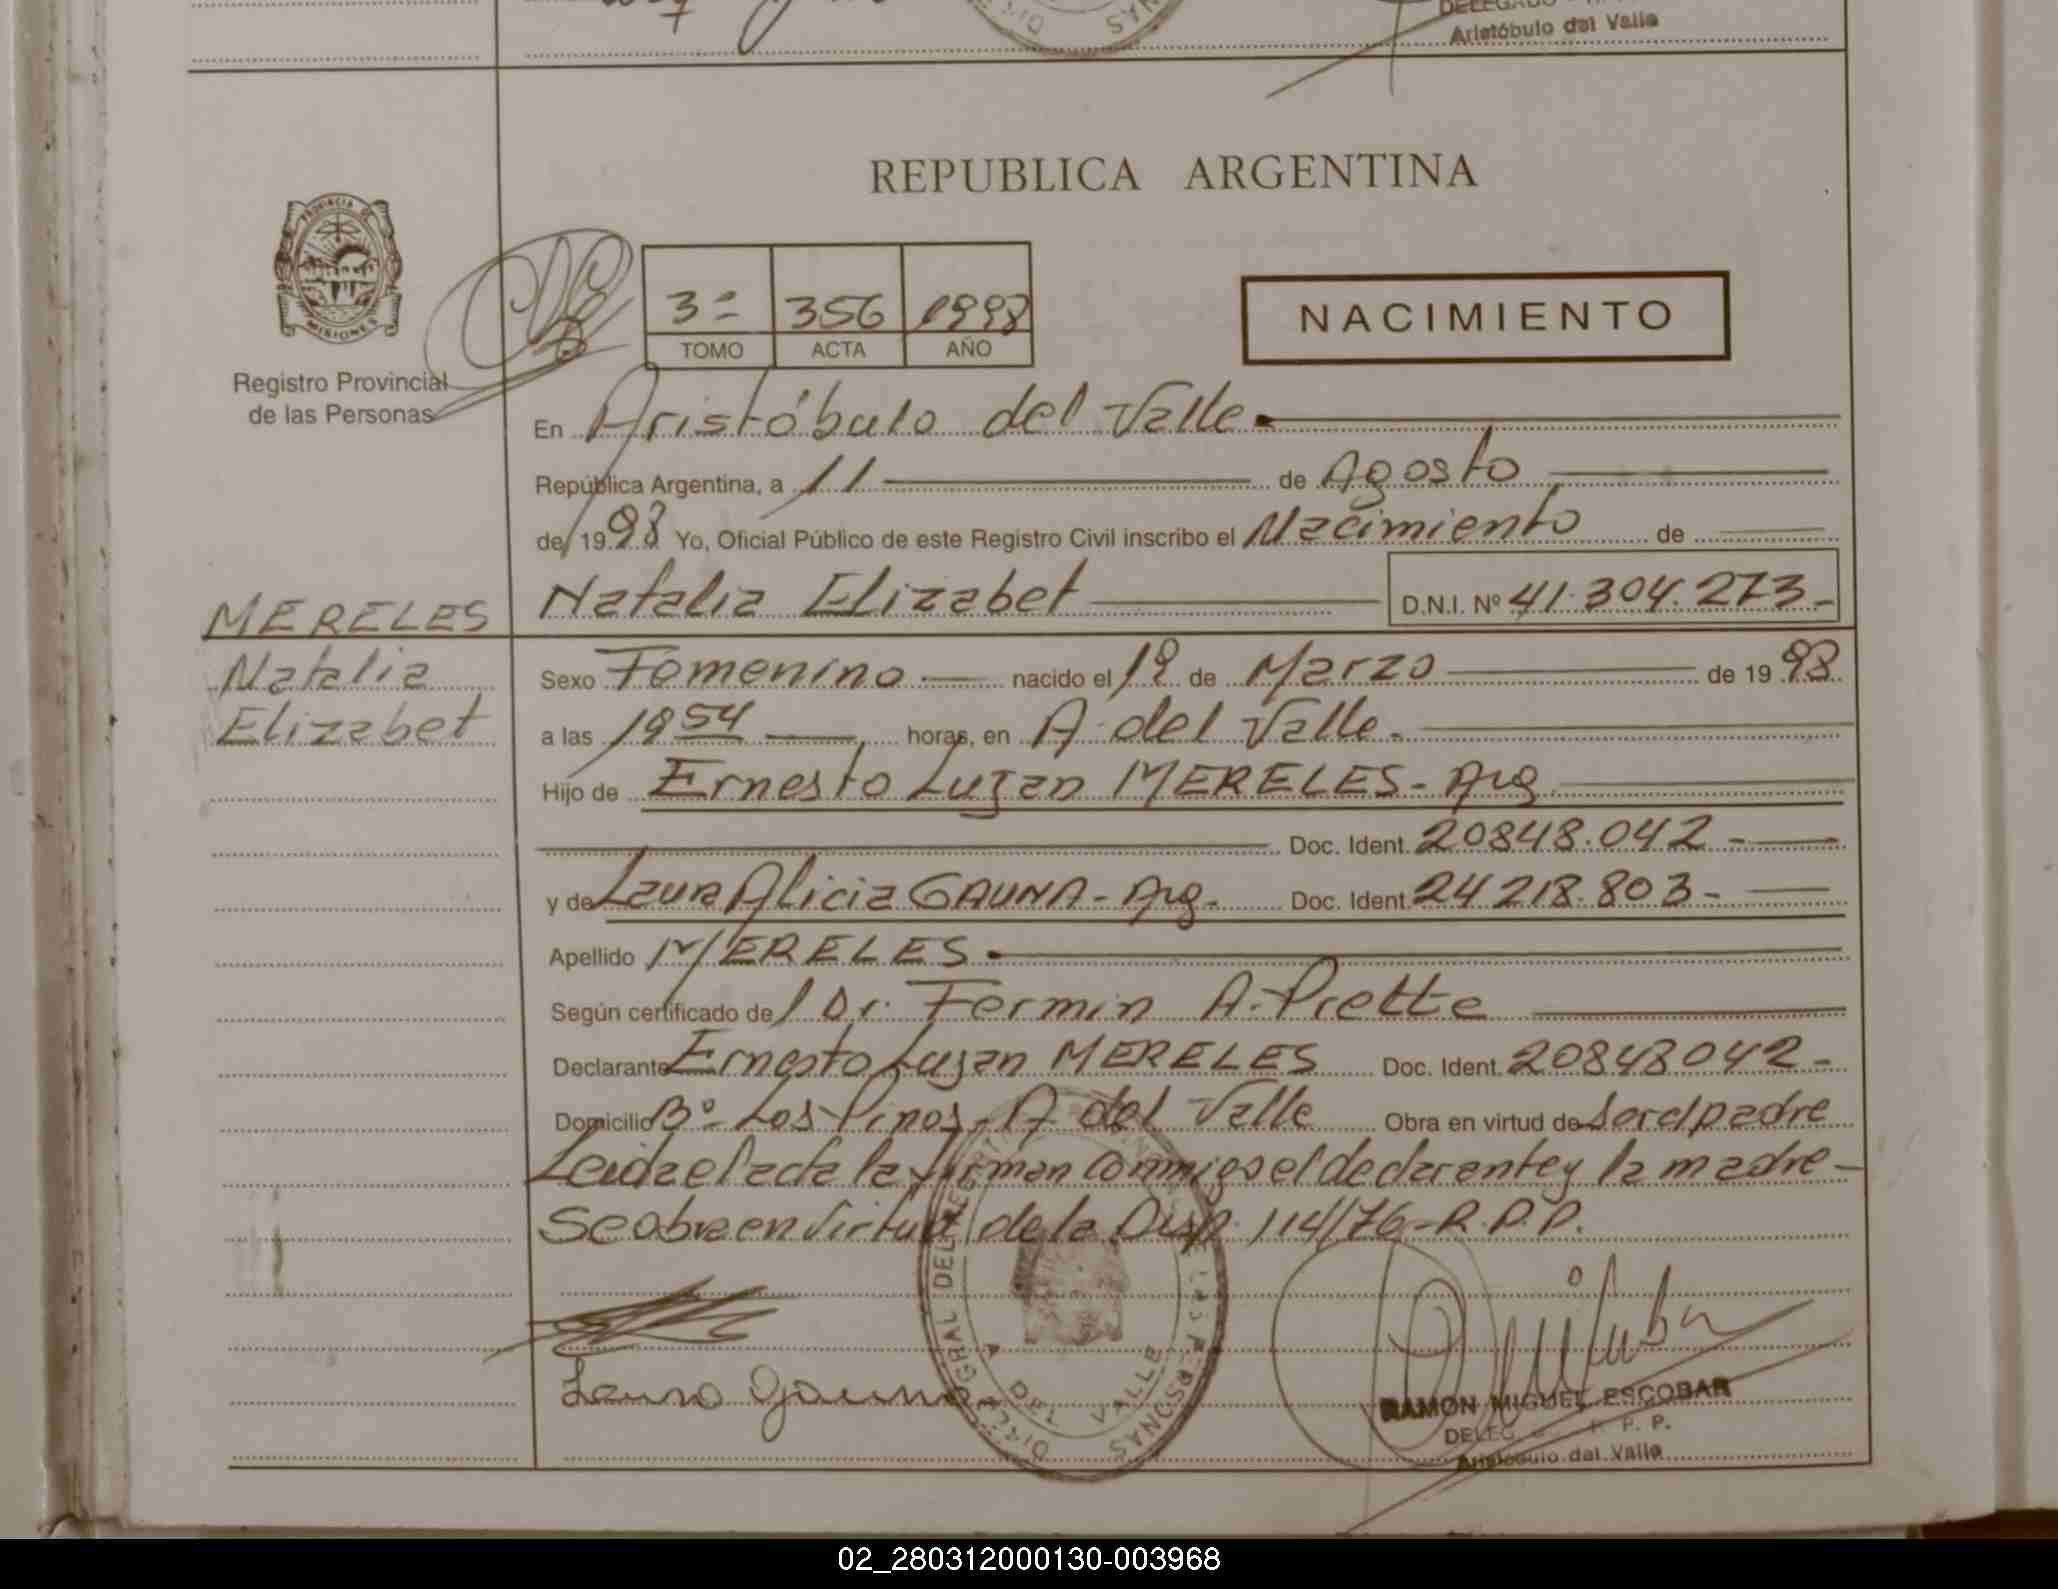 DELEGADO
Aristóbulo del Valle
REPUBLICA ARGENTINA
PROVINCIA DE
MISIONES
Registro Provincial
de las Personas
3º 356 1998
TOMO ACTA AÑO
NACIMIENTO
En Aristóbulo del Valle
República Argentina, a 11 de Agosto
de 1998 Yo, Oficial Público de este Registro Civil inscribo el Nacimiento de
Natalia Elizabet D.N.I. Nº 41.304.273-
MERELES
Natalia
Elizabet
Sexo Femenino nacido el 19 de Marzo de 1998
a las 19 54 horas, en A. del Valle.
Hijo de Ernesto Lujan MERELES- Arg
Doc. Ident. 20848.042-
y de Laura Alicia GAUNA- Arg- Doc. Ident. 24218.803-
Apellido MERELES
Según certificado de l Dr. Fermin A. Prette
Declarante Ernesto Lujan MERELES Doc. Ident. 20848042-
Domicilio Bº Los Pinos- A del Valle Obra en virtud de ser el padre
Leida el acta la firman conmigo el declarante y la madre-
Se obra en virtud de la Disp. 114/76-R.P.P.
Laura Gauna
DIREC. GRAL DEL REGISTRO PROVINCIAL DE LAS PERSONAS
A DEL VALLE
RAMON MIGUEL ESCOBAR
DELEG R. P. P.
Aristóbulo del Valle
02_280312000130-003968